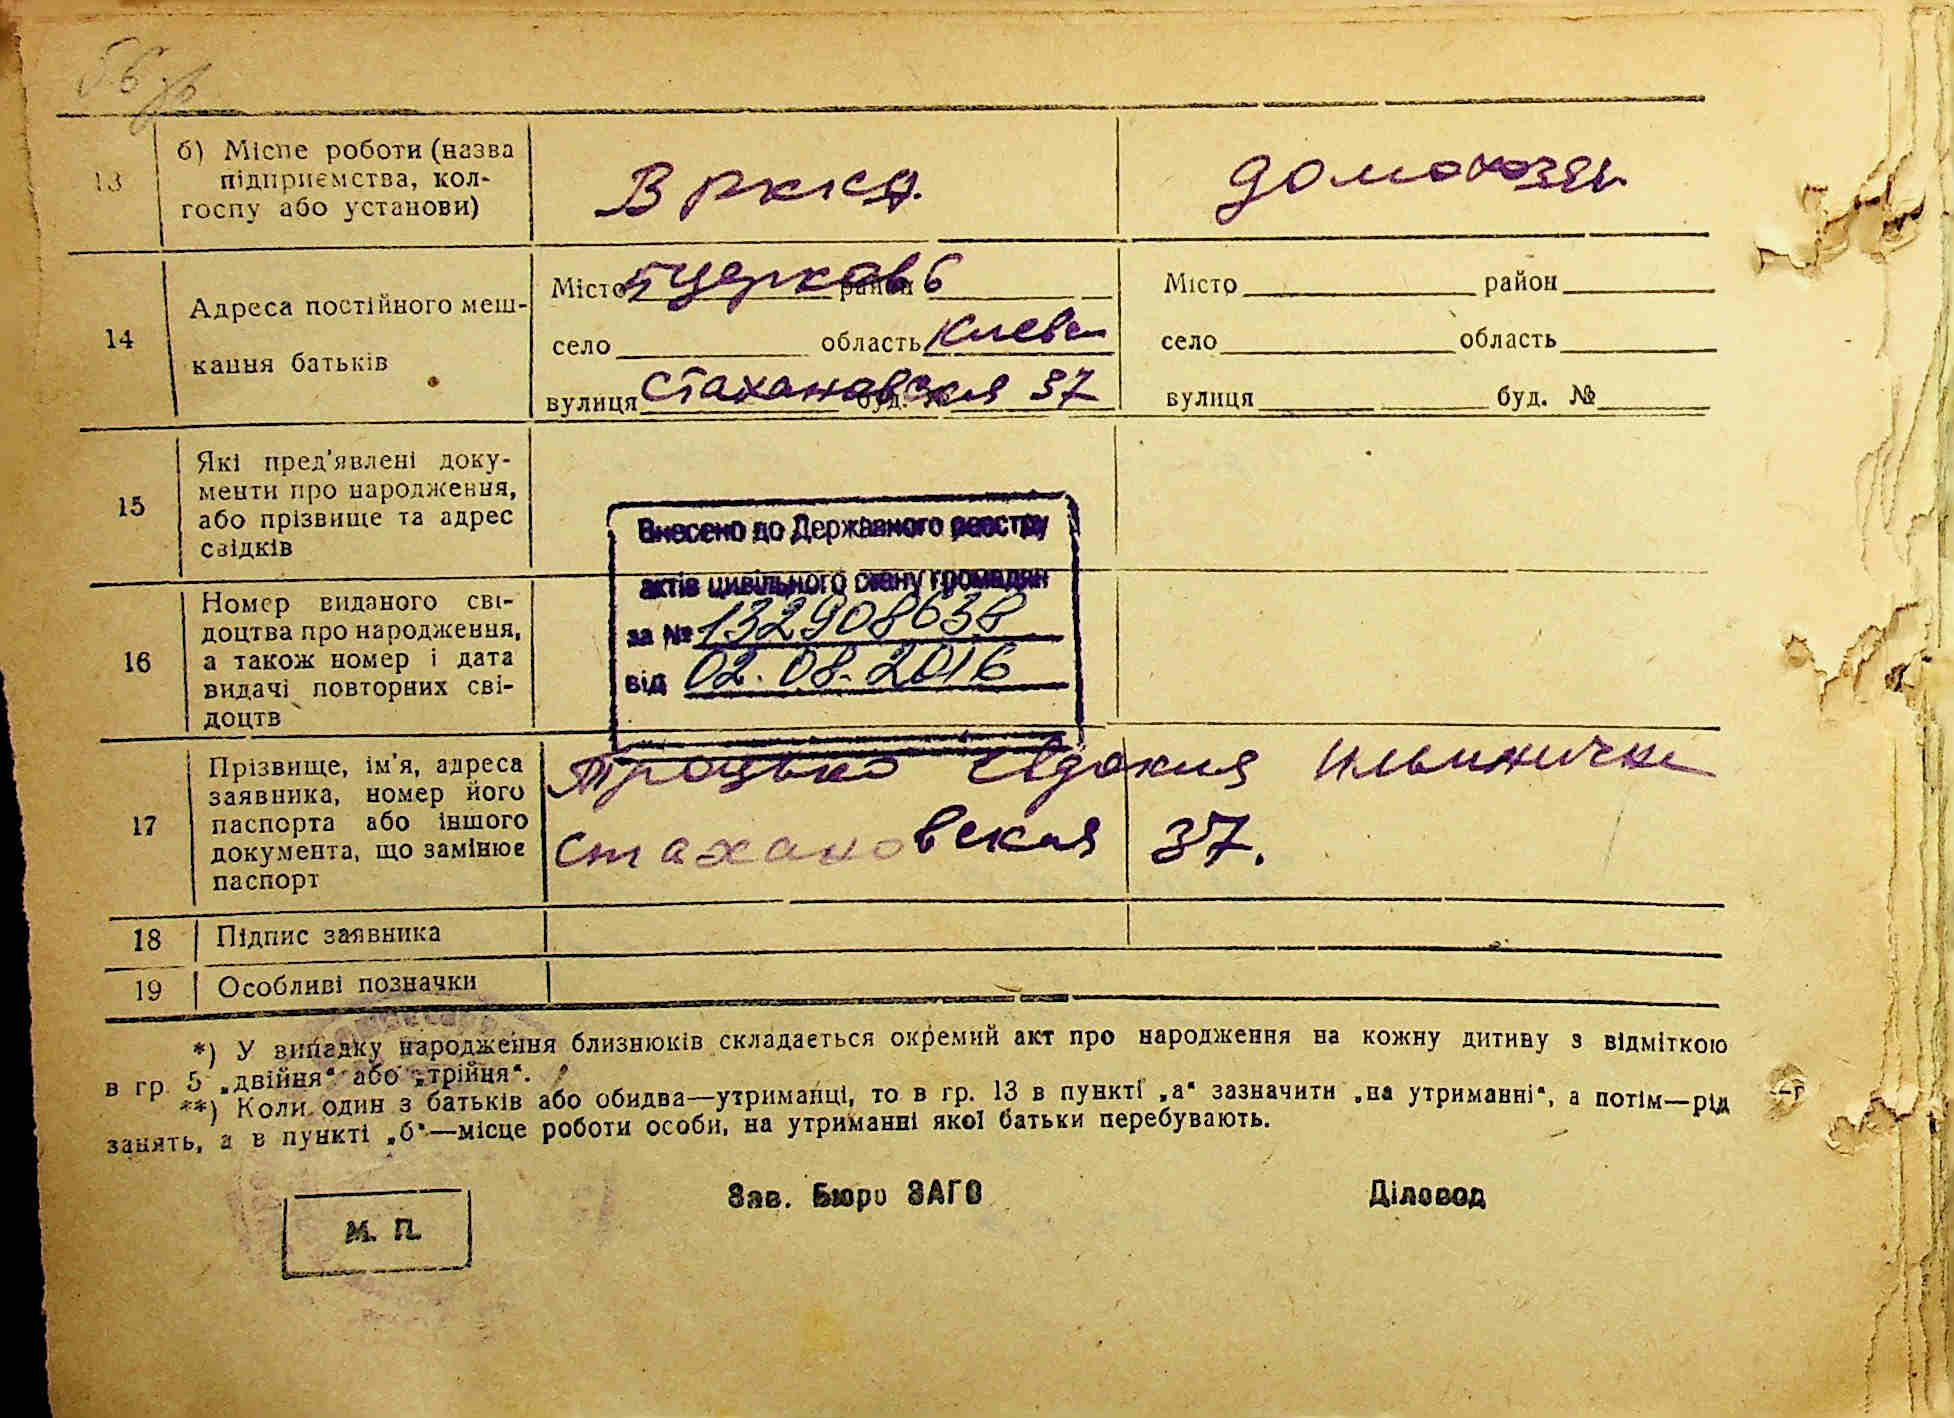 56
13
б) Місце роботи (назва
підприємства, кол-
госпу або установи)
В РККА.
домохозяй
14
Адреса постійного меш-
кання батьків
Місто Бцерковь район
село область Киевск
вулиця Стахановская буд. № 37
Місто район
село область
вулиця буд. №
15
Які пред'явлені доку-
менти про народження,
або прізвище та адрес
свідків
Внесено до Державного реєстру
актів цивільного стану громадян
за № 132908638
від 02.08.2016
16
Номер виданого сві-
доцтва про народження,
а також номер і дата
видачі повторних сві-
доцтв
17
Прізвище, ім'я, адреса
заявника, номер його
паспорта або іншого
документа, що замінює
паспорт
Троцько Евдокия Ильинична
Стахановская 37.
18 Підпис заявника
19 Особливі позначки
*) У випадку народження близнюків складається окремий акт про народження на кожну дитину з відміткою
в гр. 5 „двійня“ або „трійня“.
**) Коли один з батьків або обидва—утриманці, то в гр. 13 в пункті „а“ зазначити „на утриманні“, а потім—рід
занять, а в пункті „б“—місце роботи особи, на утриманні якої батьки перебувають.
Зав. Бюро ЗАГС
Діловод
М. П.